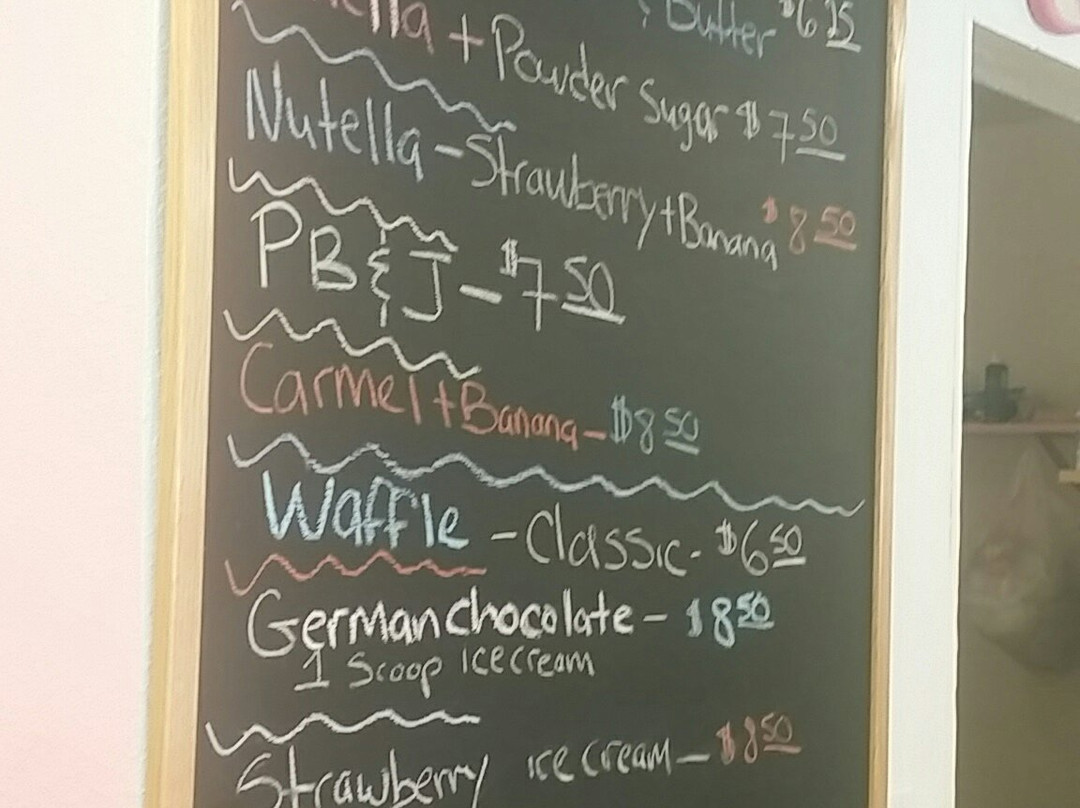 Butter $6 25
ella + Powder Sugar $7 50
Nutella - Strawberry + Banana $8 50
PB & J - $7 50
Carmel + Banana - $8 50
Waffle - Classic - $6 50
German chocolate - $8 50
1 Scoop icecream
Strawberry ice cream - $8 50